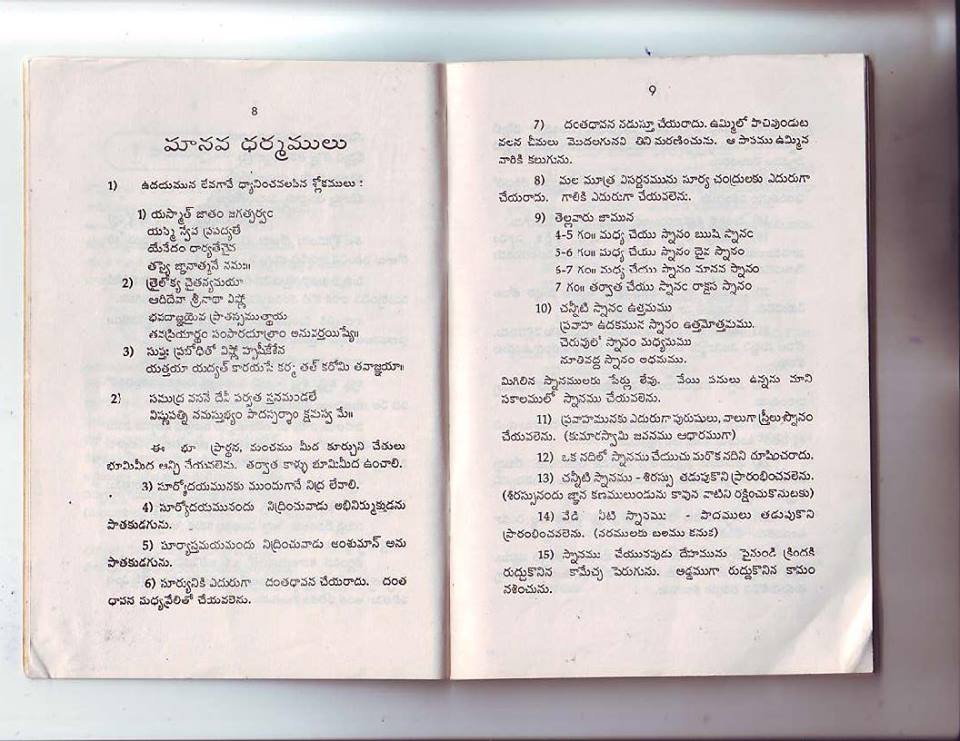 8
మానవ ధర్మములు
1) ఉదయమున లేవగానే ధ్యానించవలసిన శ్లోకములు :
1) యస్మాత్ జాతం జగత్సర్వం
యస్మి న్నేవ ప్రపద్యతే
యేనేదం ధార్యతేచైవ
తస్మై జ్ఞానాత్మనే నమః॥
2) త్రైలోక్య చైతన్యమయా
ఆదిదేవా శ్రీనాథా విష్ణో
భవదాజ్ఞయైవ ప్రాతస్సముత్థాయ
తవప్రియార్థం సంసారయాత్రాం అనువర్తయిష్యే॥
3) సుప్తః ప్రబోధితో విష్ణో హృషీకేశేన
యత్తయా యద్యత్ కారయసే కర్మ తత్ కరోమి తవాజ్ఞయా॥
2) సముద్ర వసనే దేవీ పర్వత స్తనమండలే
విష్ణుపత్ని నమస్తుభ్యం పాదస్పర్శాం క్షమస్వ మే॥
ఈ భూ ప్రార్థన, మంచము మీద కూర్చుని చేతులు
భూమిమీద ఆన్చి చేయవలెను. తర్వాత కాళ్ళు భూమిమీద ఉంచాలి.
3) సూర్యోదయమునకు ముందుగానే నిద్ర లేవాలి.
4) సూర్యోదయమునందు నిద్రించువాడు అభినిర్ముక్తుడను
పాతకుడగును.
5) సూర్యాస్తమయమందు నిద్రించువాడు అంశుమాన్ అను
పాతకుడగును.
6) సూర్యునికి ఎదురుగా దంతధావన చేయరాదు. దంత
ధావన మధ్యవ్రేలితో చేయవలెను.
9
7) దంతధావన నడుస్తూ చేయరాదు. ఉమ్మిలో పాచివుండుట
వలన చీమలు మొదలగునవి తిని మరణించును. ఆ పాపము ఉమ్మిన
వారికి కలుగును.
8) మల మూత్ర విసర్జనమును సూర్య చంద్రులకు ఎదురుగా
చేయరాదు. గాలికి ఎదురుగా చేయవలెను.
9) తెల్లవారు జామున
4-5 గం॥ మధ్య చేయు స్నానం ఋషి స్నానం
5-6 గం॥ మధ్య చేయు స్నానం దైవ స్నానం
6-7 గం॥ మధ్య చేయు స్నానం మానవ స్నానం
7 గం॥ తర్వాత చేయు స్నానం రాక్షస స్నానం
10) చన్నీటి స్నానం ఉత్తమము
ప్రవాహ ఉదకమున స్నానం ఉత్తమోత్తమము.
చెరువులో స్నానం మధ్యమము
నూతివద్ద స్నానం అధమము.
మిగిలిన స్నానములకు పేర్లు లేవు. వేయి పనులు ఉన్నను మాని
సకాలములో స్నానము చేయవలెను.
11) ప్రవాహమునకు ఎదురుగా పురుషులు, వాలుగా స్త్రీలు స్నానం
చేయవలెను. (కుమారస్వామి జననము ఆధారముగా)
12) ఒక నదిలో స్నానము చేయుచు మరొక నదిని దూషించరాదు.
13) చన్నీటి స్నానము - శిరస్సు తడుపుకొని ప్రారంభించవలెను.
(శిరస్సునందు జ్ఞాన కణములుండును కావున వాటిని రక్షించుకొనుటకు)
14) వేడి నీటి స్నానము - పాదములు తడుపుకొని
ప్రారంభించవలెను. (నరములకు బలము కనుక)
15) స్నానము చేయునపుడు దేహమును పైనుండి క్రిందకి
రుద్దుకొనిన కామేచ్ఛ పెరుగును. అడ్డముగా రుద్దుకొనిన కామం
నశించును.